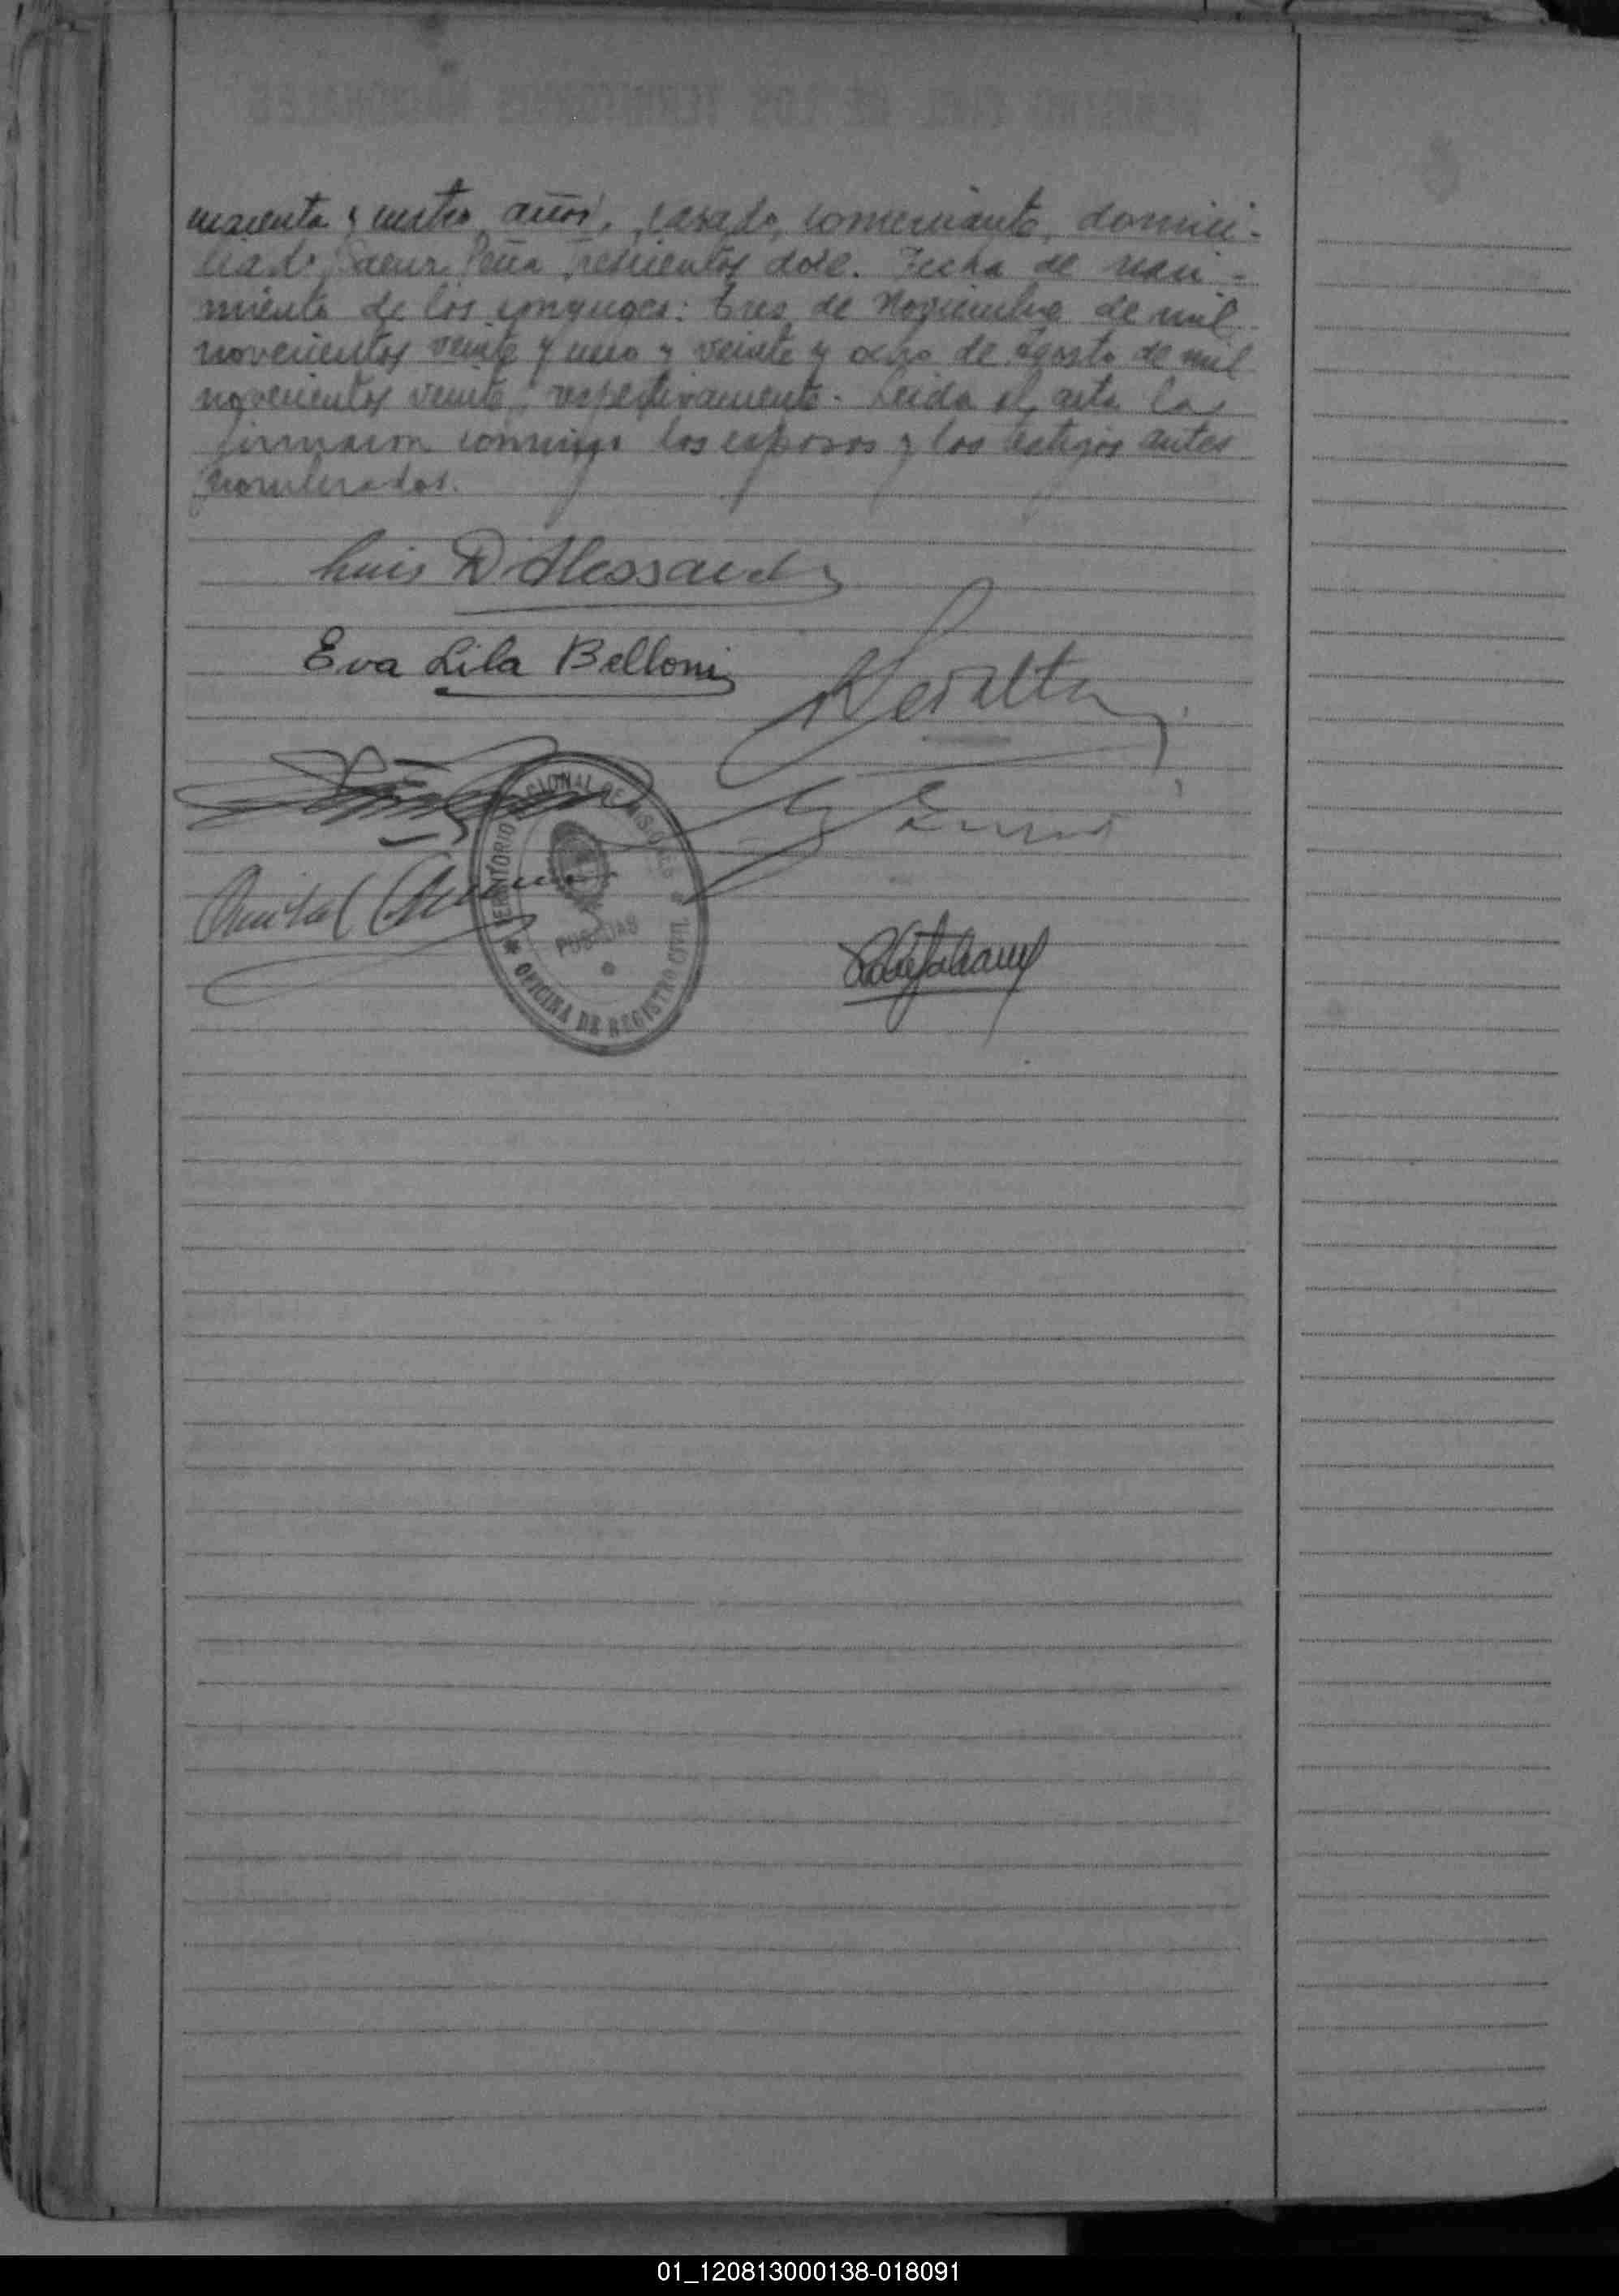 y cuatro años, casado, comerciante, domici-
liado Saenz Peña trescientos doce. Fecha de naci-
miento de los conyuges: tres de Noviembre de mil
novecientos veinte y uno y veinte y ocho de agosto de mil
novecientos veinte, respectivamente. Leida el acta la
firmaron conmigo los esposos y los testigos antes
nombrados.
Luis D'Alessandro
Eva Lila Belloni
Peralta
TERRITORIO NACIONAL DE MISIONES
POSADAS
OFICINA DE REGISTRO CIVIL
01_120813000138-018091